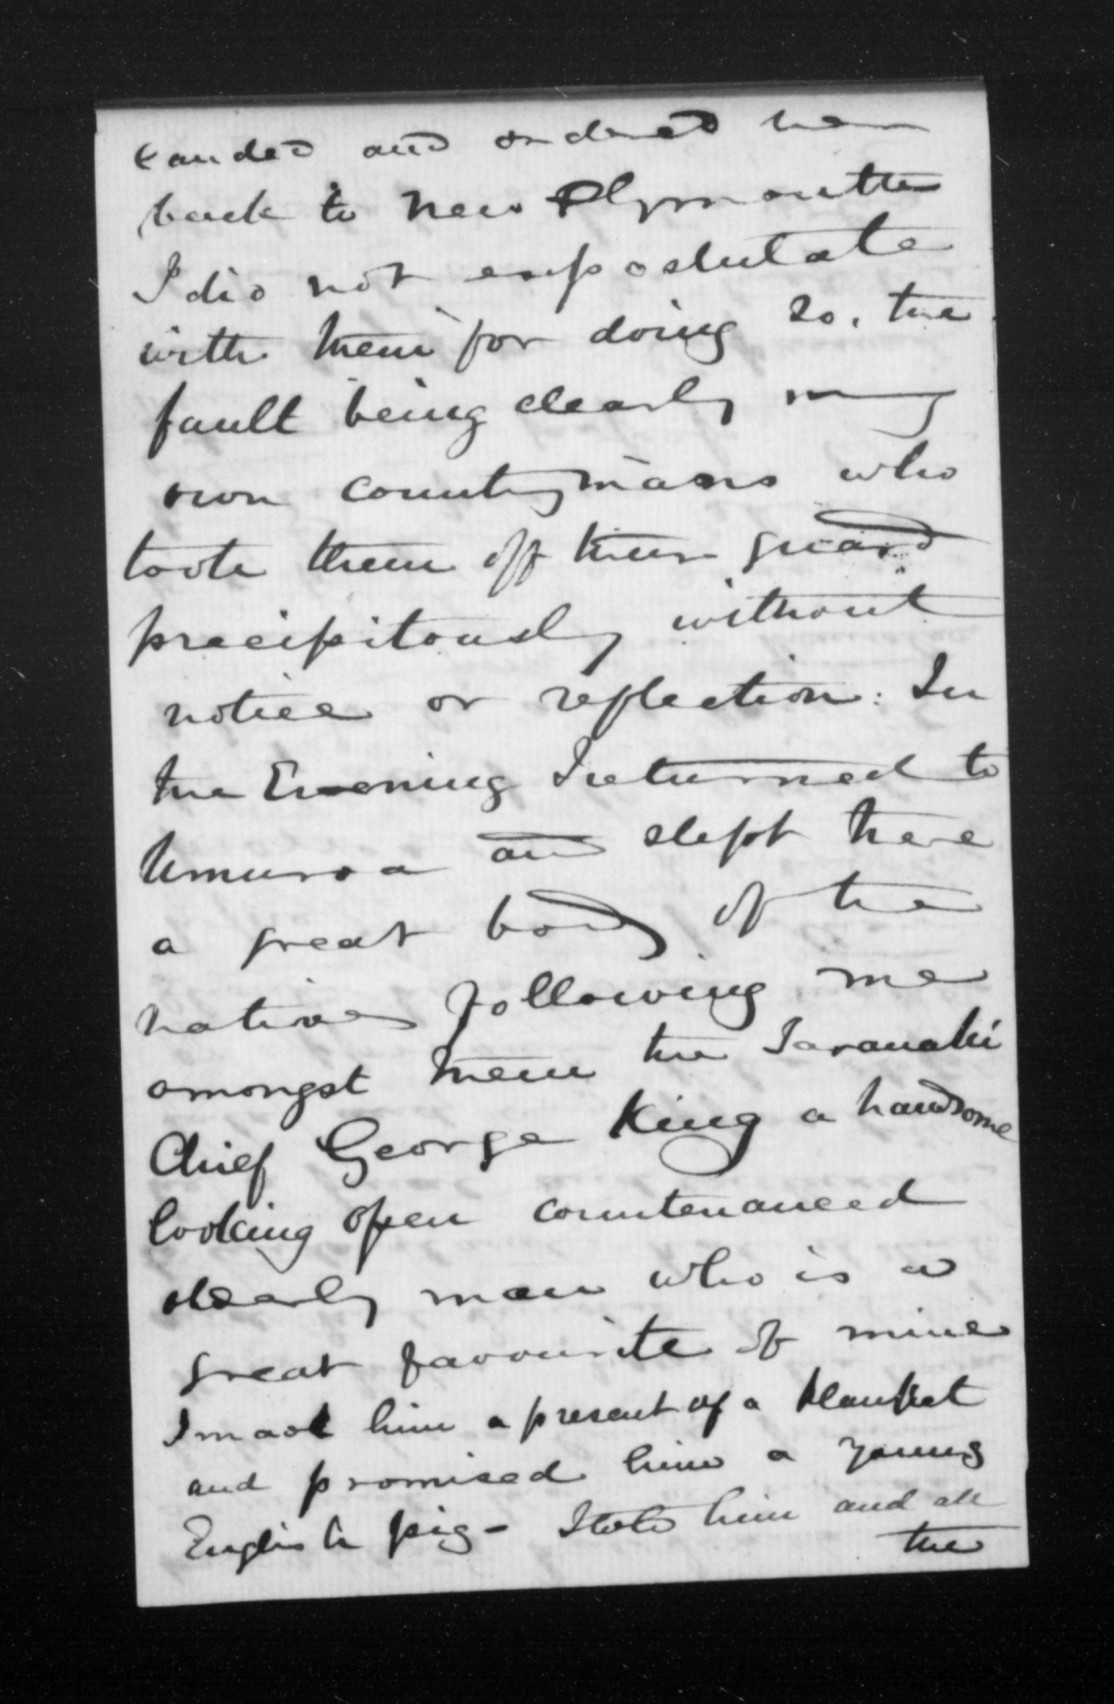 landed and ordered them
back to New Plymouth
I did not expostulate
with them for doing so, the
fault being clearly my
own countrymans who
took them off their guard
precipitously without
notice or reflection. In
the Evening I returned to
Umuroa and slept there
a great body of the
natives following me
amongst them the Taranaki
Chief George King a handsome
looking open countenanced
elderly man who is a
great favourite of mine
I made him a present of a blanket
and promised him a young
English pig - I told him and all
the